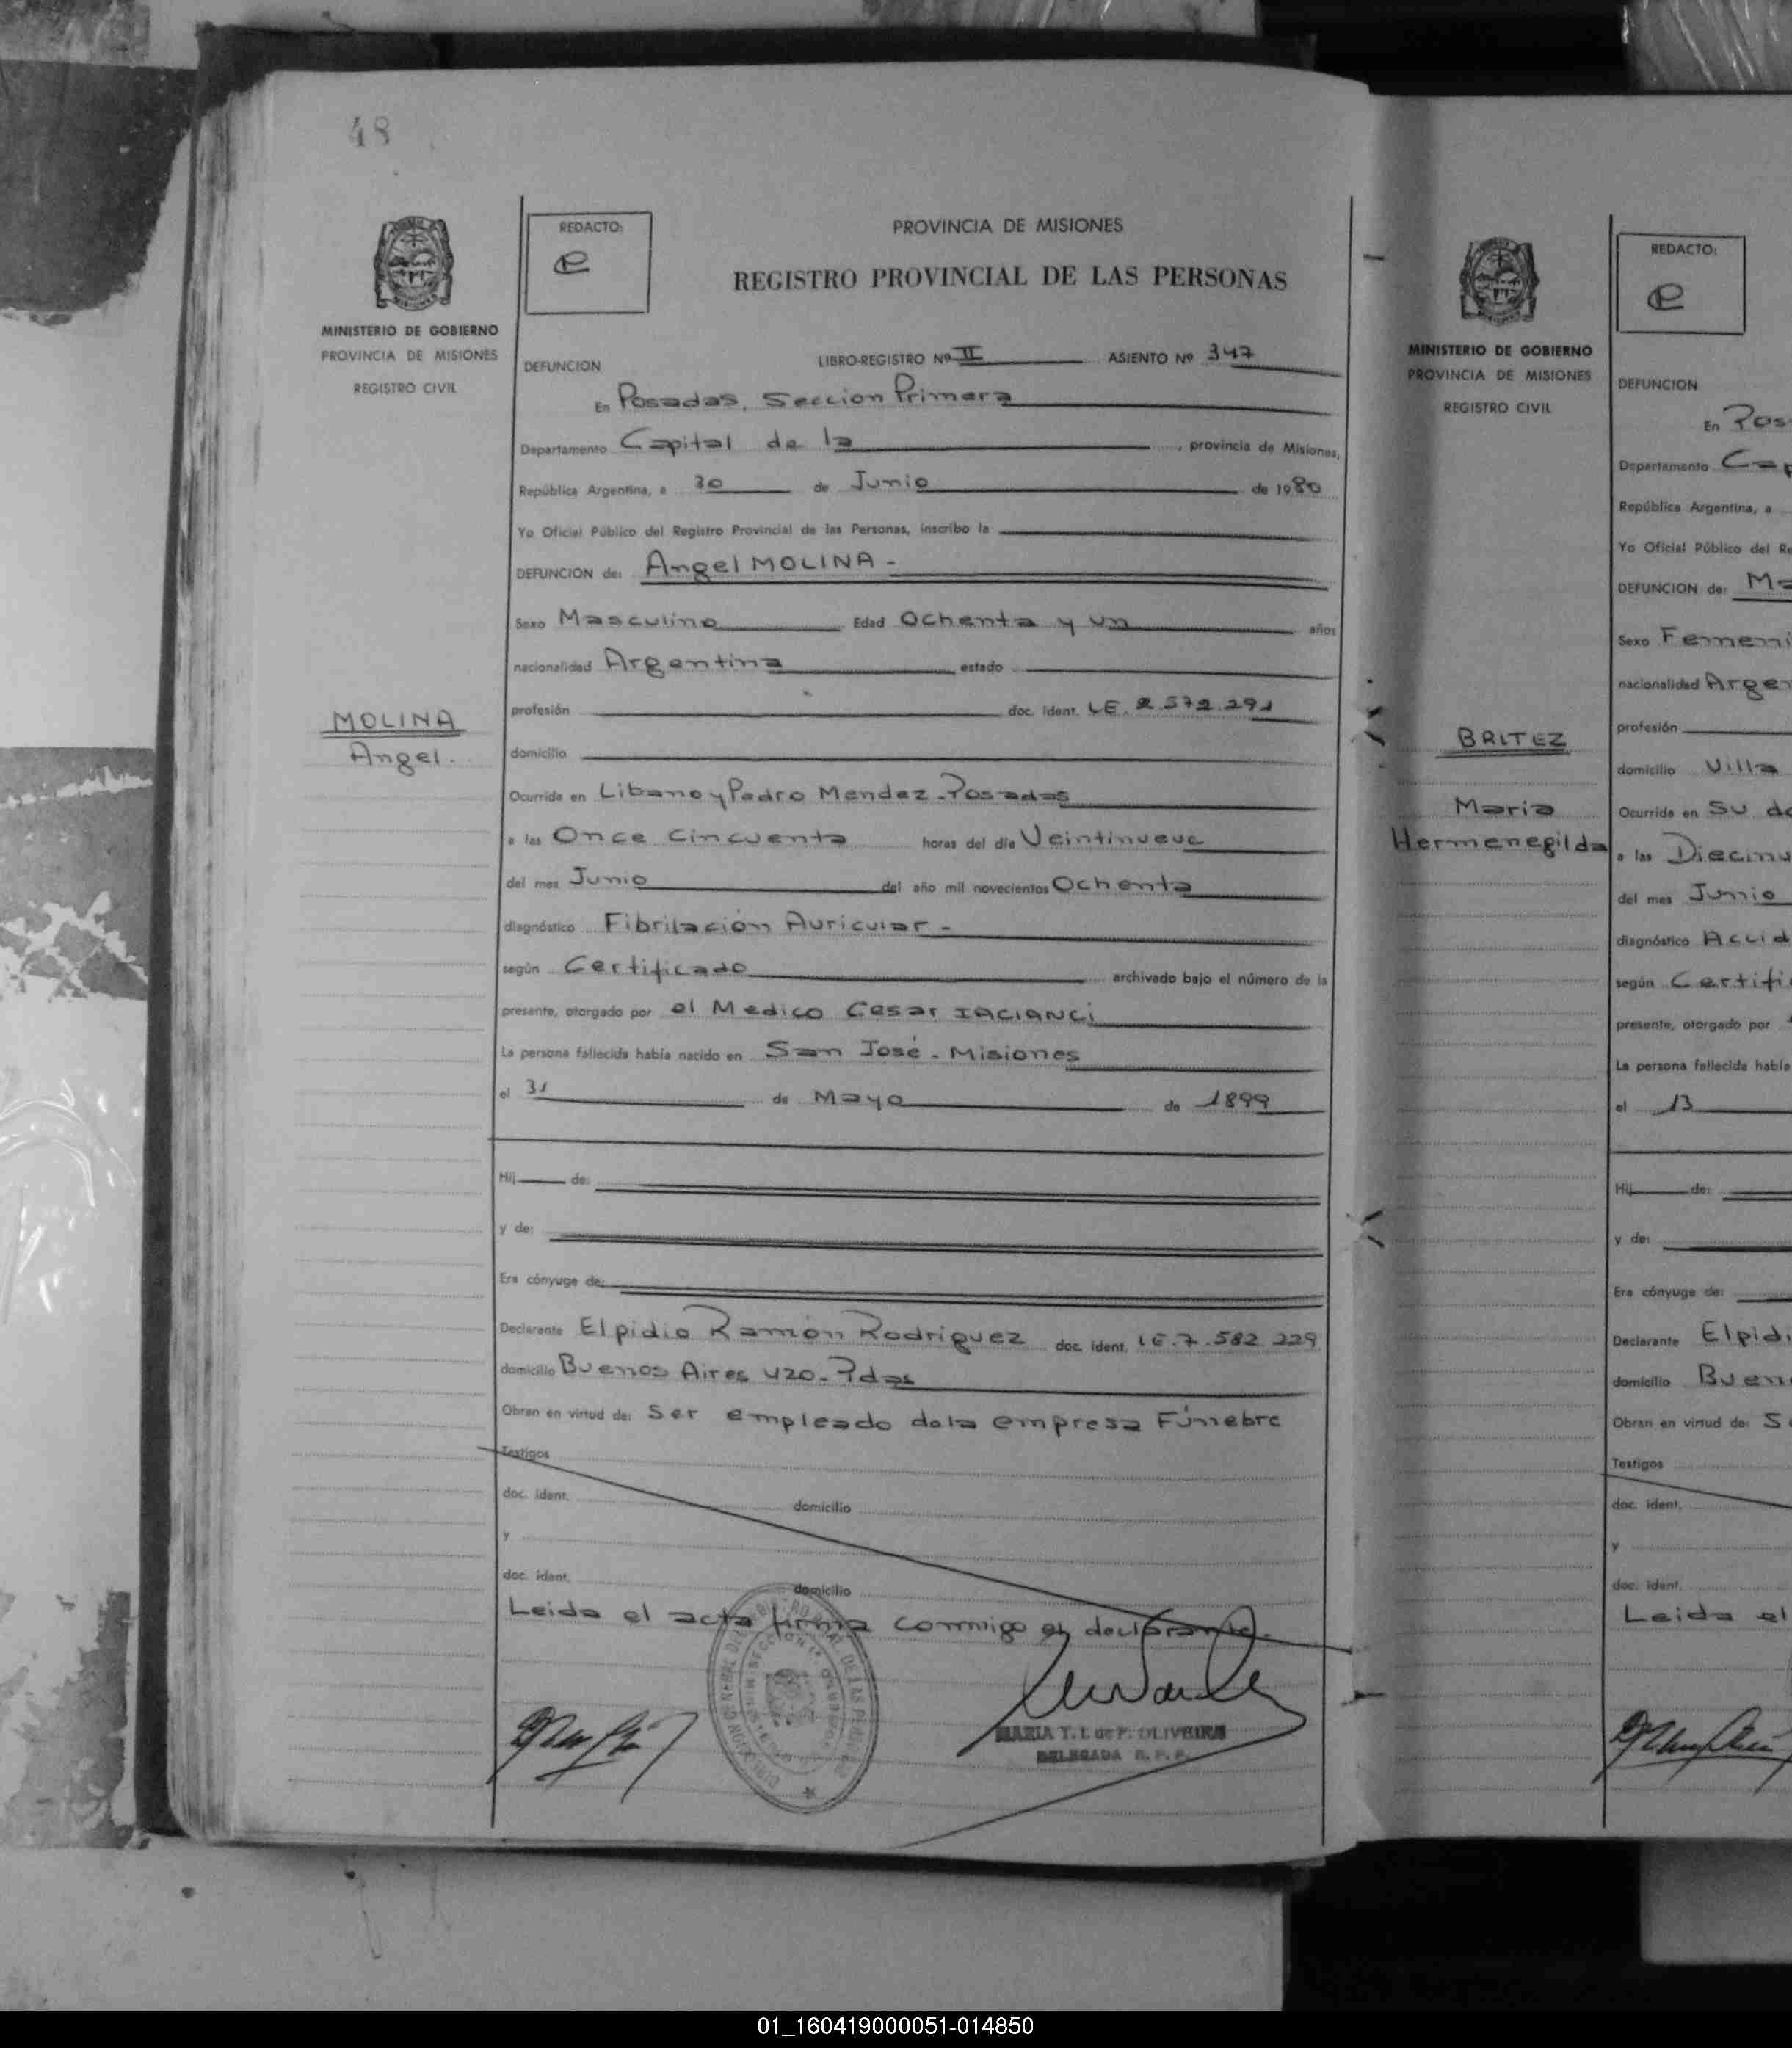 48
MINISTERIO DE GOBIERNO
PROVINCIA DE MISIONES
REGISTRO CIVIL
MOLINA
Angel.
REDACTO:
PROVINCIA DE MISIONES
REGISTRO PROVINCIAL DE LAS PERSONAS
DEFUNCION LIBRO-REGISTRO Nº II ASIENTO Nº 347
En Posadas, Seccion Primera
Departamento Capital de la , provincia de Misiones,
República Argentina, a 30 de Junio de 1980
Yo Oficial Público del Registro Provincial de las Personas, inscribo la
DEFUNCION de: Angel MOLINA -
Sexo Masculino Edad Ochenta y un años
nacionalidad Argentina estado
profesión doc. ident. LE. 2.572.291
domicilio
Ocurrida en Libano y Pedro Mendez - Posadas
a las Once cincuenta horas del día Veintinueve
del mes Junio del año mil novecientos Ochenta
diagnóstico Fibrilación Auricular -
según Certificado archivado bajo el número de la
presente, otorgado por el Medico Cesar IACIANCi
La persona fallecida había nacido en San José - Misiones
el 31 de Mayo de 1899
Hij de:
y de:
Era cónyuge de:
Declarante Elpidio Ramón Rodríguez doc. ident. LE. 7.582 229
domicilio Buenos Aires 420 - Pdas
Obran en virtud de: Ser empleado de la empresa Fúnebre
Testigos
doc. ident. domicilio
y
doc. ident. domicilio
Leida el acta firma conmigo el declarante.
MARIA T. I. de P. OLIVEIRA
DELEGADA R. P. P.
MINISTERIO DE GOBIERNO
PROVINCIA DE MISIONES
REGISTRO CIVIL
BRITEZ
Maria
Hermenegilda
REDACTO:
DEFUNCION
En Pos
Departamento Cap
República Argentina, a
Yo Oficial Público del Re
DEFUNCION de: Ma
Sexo Femeni
nacionalidad Argen
profesión
domicilio Villa
Ocurrida en Su do
a las Diecinu
del mes Junio
diagnóstico Accid
según Certifi
presente, otorgado por
La persona fallecida había
el 13
Hij de:
y de:
Era cónyuge de:
Declarante Elpidi
domicilio Buen
Obran en virtud de: S
Testigos
doc. ident.
y
doc. ident.
Leida el
01_160419000051-014850